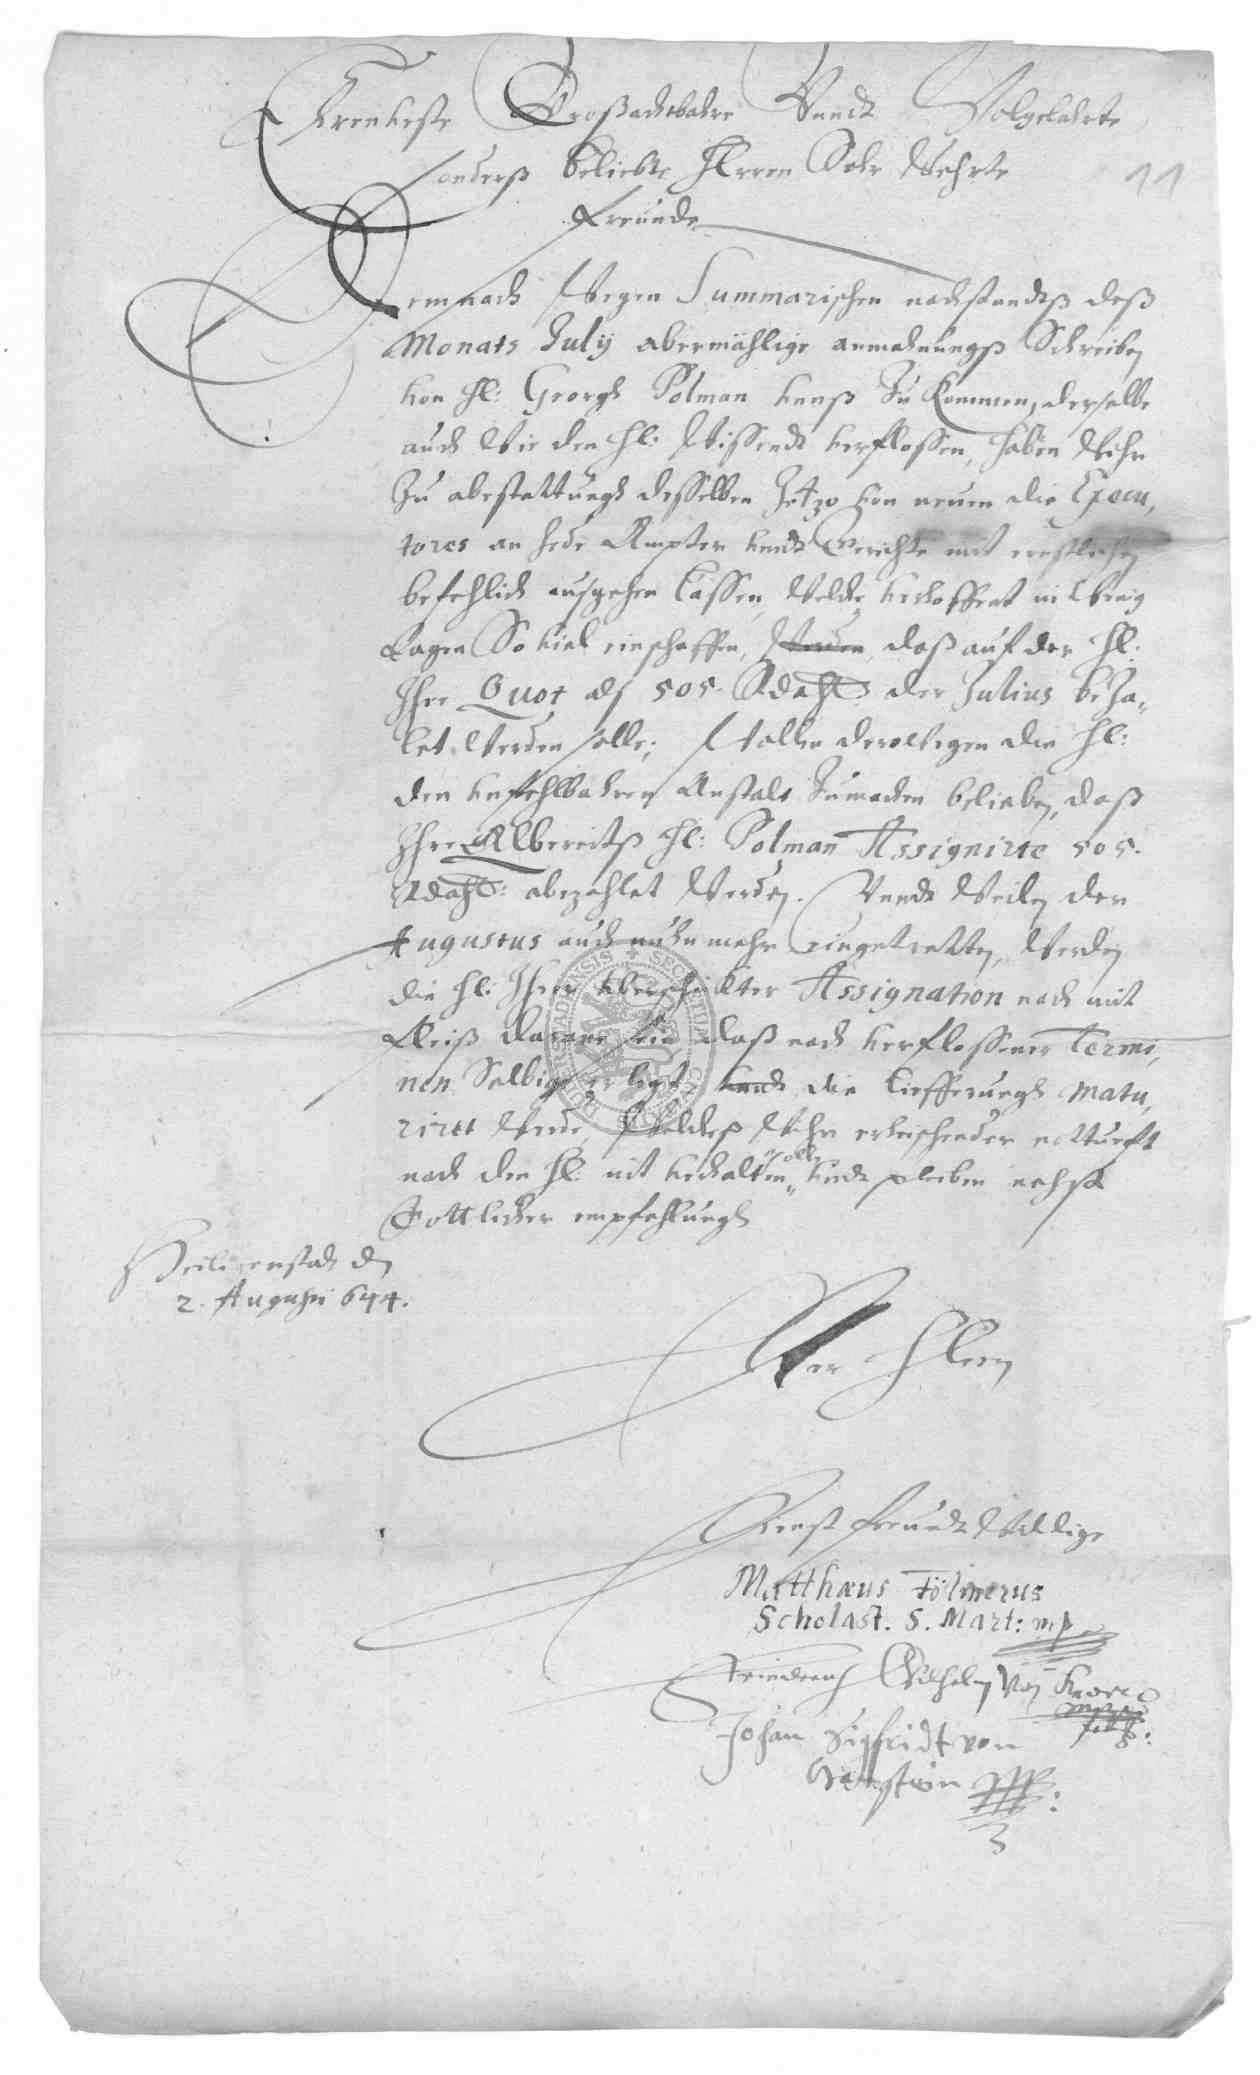 Ehrenveste Großachtbahre Vundt Wolgelahrte
sonderß beliebte Herren Sehr Wehrte
Freunde
11
Demnach Wegen Summarischen nachstandtß deß
Monats July abermählige anmahnungß Schreiben
von Hl: Georgh Polman vnnß Zu Kommen, derselbe
auch Wie den Hl: Wissendt verflossen, haben Wihr
Zu abestattungh desselben Jetzo von neuen die Execu,
tores an hede Ampter vndt Gerichte mit ernstlichen
befehlich ausgehen lassen, Welche verhoffent in Wenig
tagen So viel einschaffen, werden, daß auf der Hl:
Ihre Quot als 505. Rdahl. der Julius beza„
let Werden solle; Wollen derowegen die Hl:
den vnfehlbahren Anstalt Zumachen belieben, daß
Ihre Albereitß Hl: Polman Assignirte 505.
Rdahl: abezahlet Werden. Vundt Weilen der
Augustus auch nuhn mehr eingetretten, Werden
die Hl: Ihrer überschickter Assignation nach mit
Fleiß daran sein, daß nach verflossener Termi,
nen Selbige erlegt, vndt die lieffrungh matu,
rirtt Werde, Welcheß Wihr erheischender notturfft
nach den Hl: nit verhalten„ vndt pleiben nehst
wolln
Gottlicher empfehlungh
Heiligenstadt den
2. Augusti 644.
Der Hern
Dienst freundt Willige
Matthæus Fölmerus
Scholast. S. Mart: mp
Friederich Wilhelm Von Knorr
mppr
Johan Sigfridt von
Hanstein mpp: